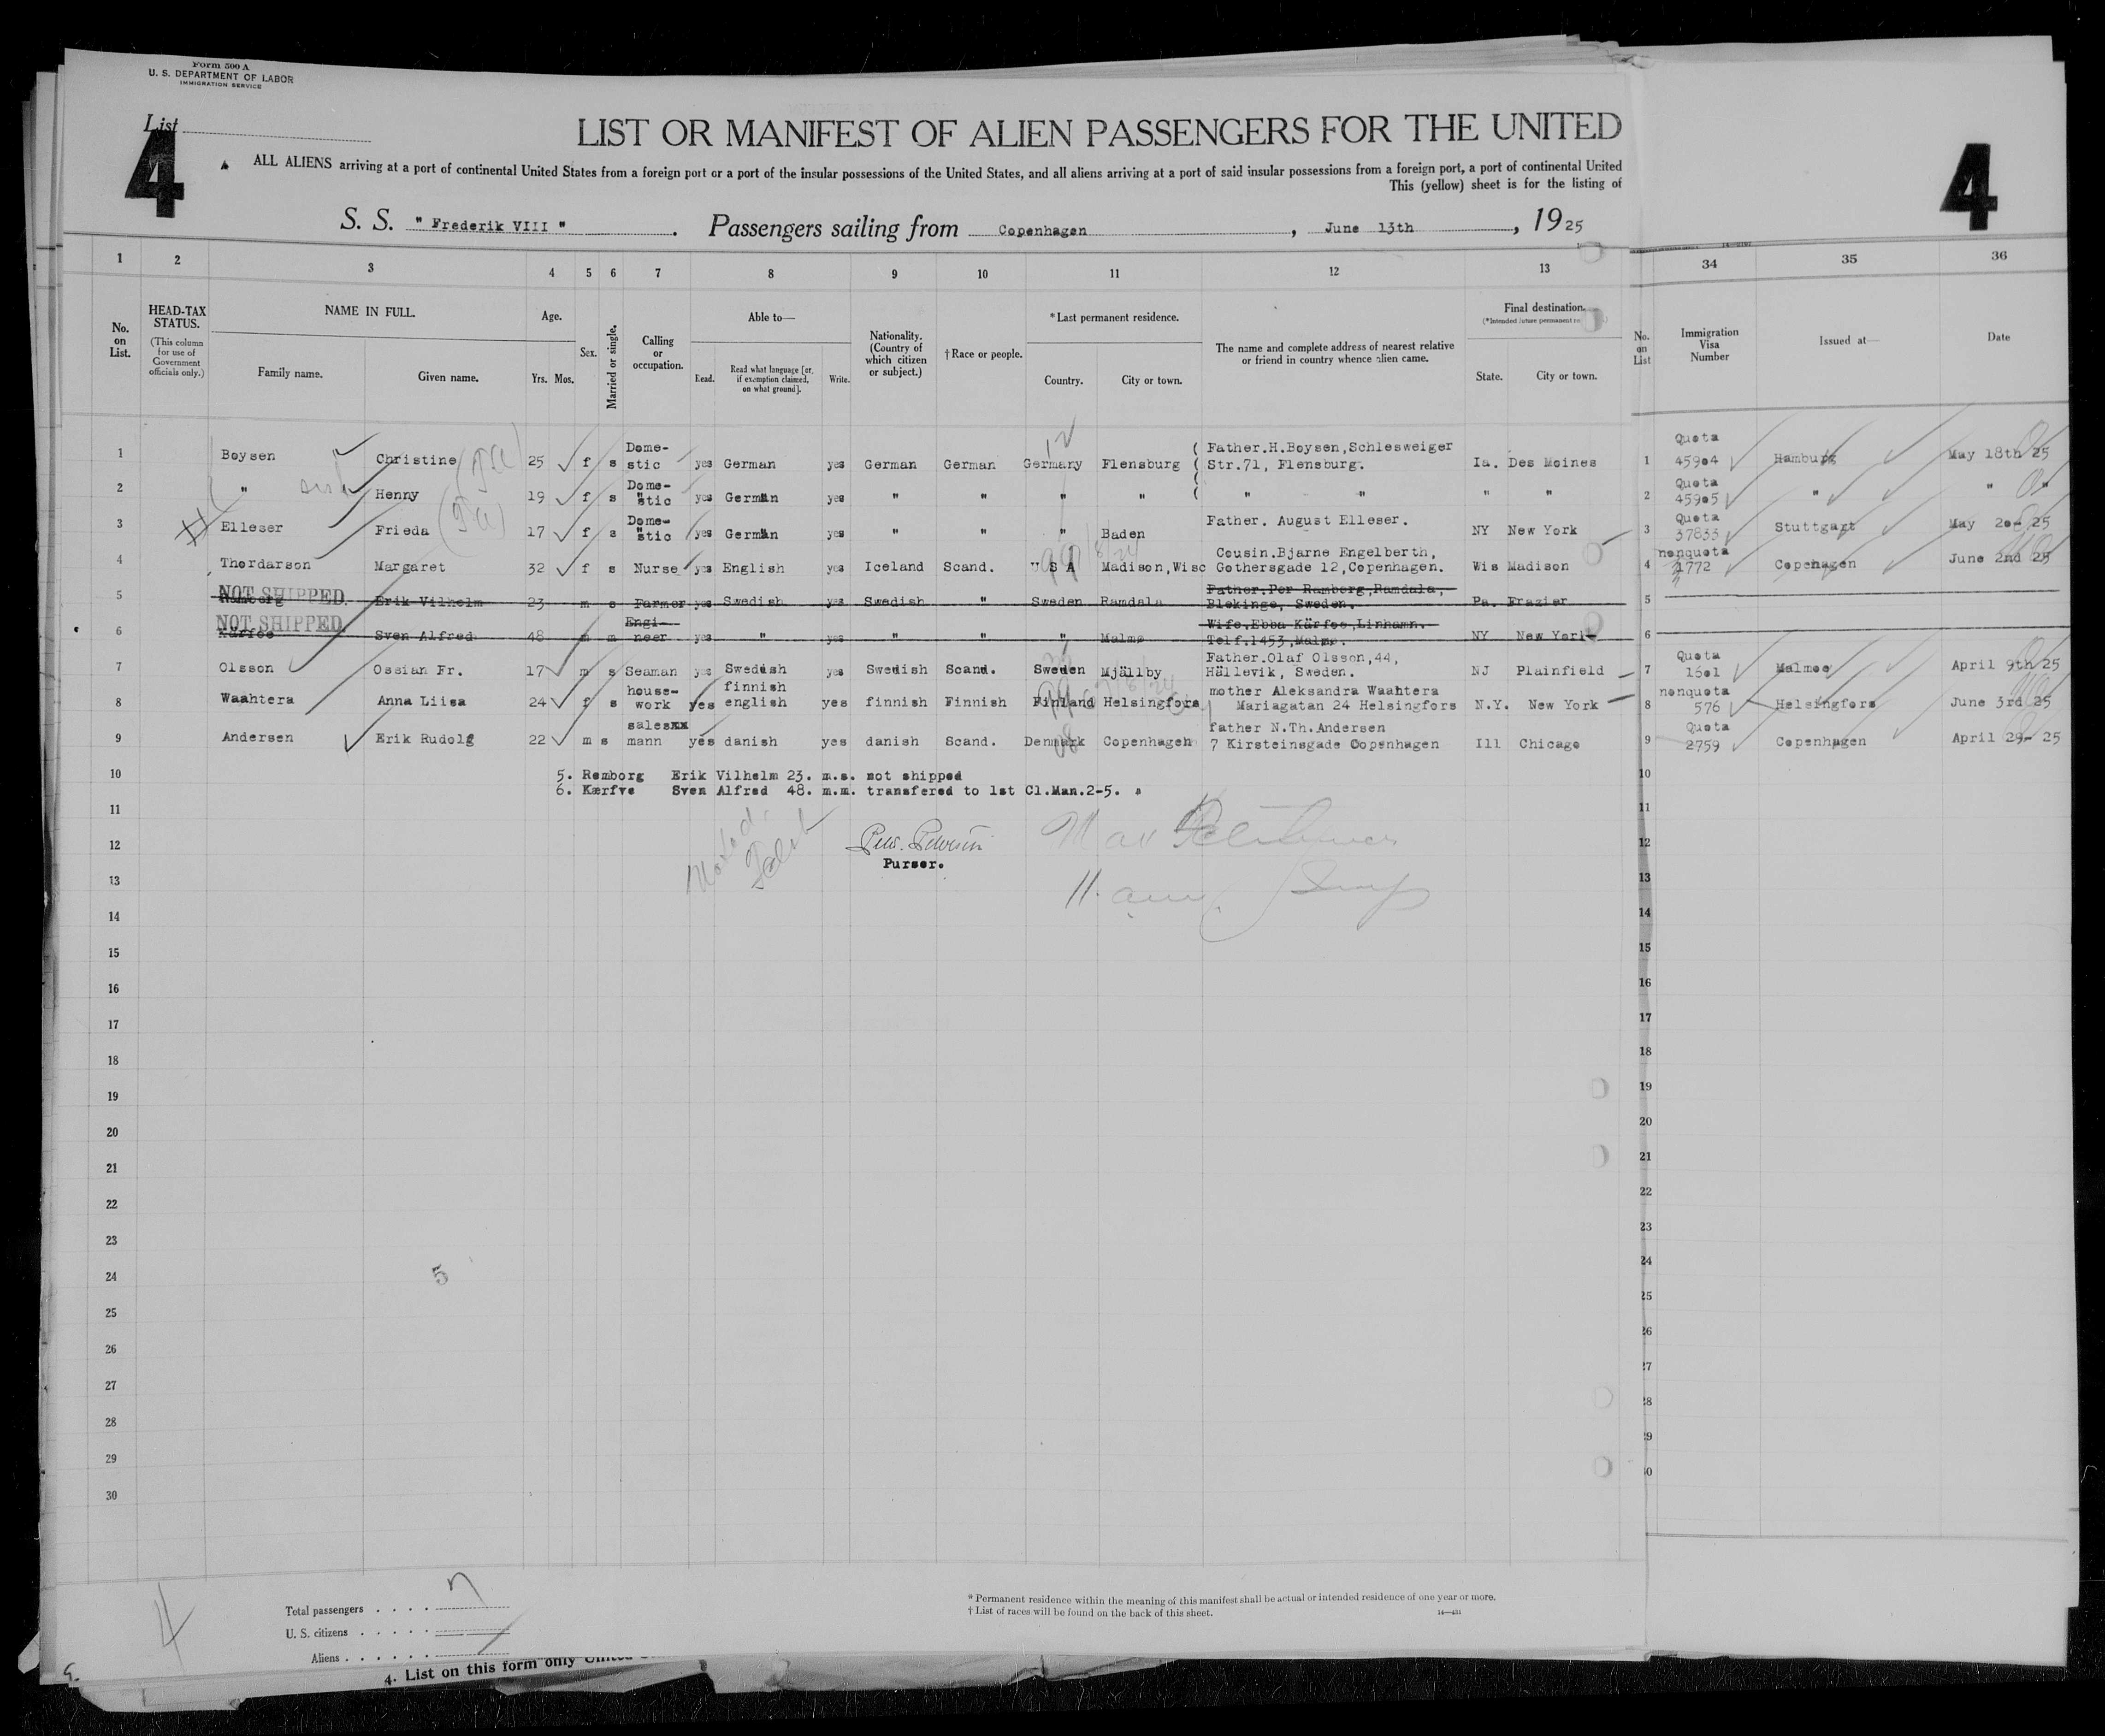 Form 500 A
U. S. DEPARTMENT OF LABOR
IMMIGRATION SERVICE
List
4
4
LIST OR MANIFEST OF ALIEN PASSENGERS FOR THE UNITED
ALL ALIENS arriving at a port of continental United States from a foreign port or a port of the insular possessions of the United States, and all aliens arriving at a port of said insular possessions from a foreign port, a port of continental United
This (yellow) sheet is for the listing of
S. S. " Frederik VIII " . Passengers sailing from Copenhagen , June 13th , 1925
1 2 3 4 5 6 7 8 9 10 11 12 13 34 35 36
No. on List.
HEAD-TAX STATUS.
(This column for use of Government officials only.)
NAME IN FULL.
Family name. Given name.
Age.
Yrs. Mos.
Sex.
Married or single.
Calling or occupation.
Able to—
Read. Read what language [or, if exemption claimed, on what ground]. Write.
Nationality. (Country of which citizen or subject.)
† Race or people.
* Last permanent residence.
Country. City or town.
The name and complete address of nearest relative or friend in country whence alien came.
Final destination.
State. City or town.
No. on List
Immigration Visa Number
Issued at—
Date
1 Boysen Christine 25 f s Dome-stic yes German yes German German Germany Flensburg ( Father.H.Boysen,Schlesweiger Str.71, Flensburg. Ia. Des Moines 1 Quota 45904 Hamburg May 18th 25
2 " Henny 19 f s Dome-stic yes German yes " " " " " " " " 2 Quota 45905 " " "
3 Elleser Frieda 17 f s Dome-stic yes German yes " " " Baden Father. August Elleser. NY New York 3 Quota 37833 Stuttgart May 20- 25
4 Thordarson Margaret 32 f s Nurse yes English yes Iceland Scand. U S A Madison,Wisc Cousin.Bjarne Engelberth, Gothersgade 12,Copenhagen. Wis Madison 4 nonquota 1772 Copenhagen June 2nd 25
NOT SHIPPED
5 Erik Vilhelm 23 m s Farmer yes Swedish yes Swedish " Sweden Ramdala Father.Per Ramberg,Ramdala, Blekinge, Sweden. Pa. Frazier 5
NOT SHIPPED
6 Kärfoe Sven Alfred 48 m m Engi-neer yes " yes " " " Malmø Wife.Ebba Kärfoe,Linhamn. Telf.1453,Malmø. NY New York 6
7 Olsson Ossian Fr. 17 m s Seaman yes Swedish yes Swedish Scand. Sweden Mjällby Father.Olaf Olsson,44, Hällevik, Sweden. NJ Plainfield 7 Quota 1601 Malmoe April 9th 25
8 Waahtera Anna Liisa 24 f s house-work yes finnish english yes finnish Finnish Finland Helsingfors mother Aleksandra Waahtera Mariagatan 24 Helsingfors N.Y. New York 8 nonquota 576 Helsingfors June 3rd 25
9 Andersen Erik Rudolf 22 m s salesxx mann yes danish yes danish Scand. Denmark Copenhagen father N.Th.Andersen 7 Kirsteinsgade Copenhagen Ill Chicago 9 Quota 2759 Copenhagen April 29- 25
10 5. Remborg Erik Vilhelm 23. m.s. not shipped 10
6. Kærfve Sven Alfred 48. m.m. transfered to 1st Cl.Man.2-5.
11 11
12 12
Purser.
13 13
14 14
15 15
16 16
17 17
18 18
19 19
20 20
21 21
22 22
23 23
24 5 24
25 25
26 26
27 27
28 28
29 29
30 30
Total passengers . . . .
U. S. citizens . . . . .
Aliens . . . . . .
* Permanent residence within the meaning of this manifest shall be actual or intended residence of one year or more.
† List of races will be found on the back of this sheet.
14—431
4
4. List on this form only United